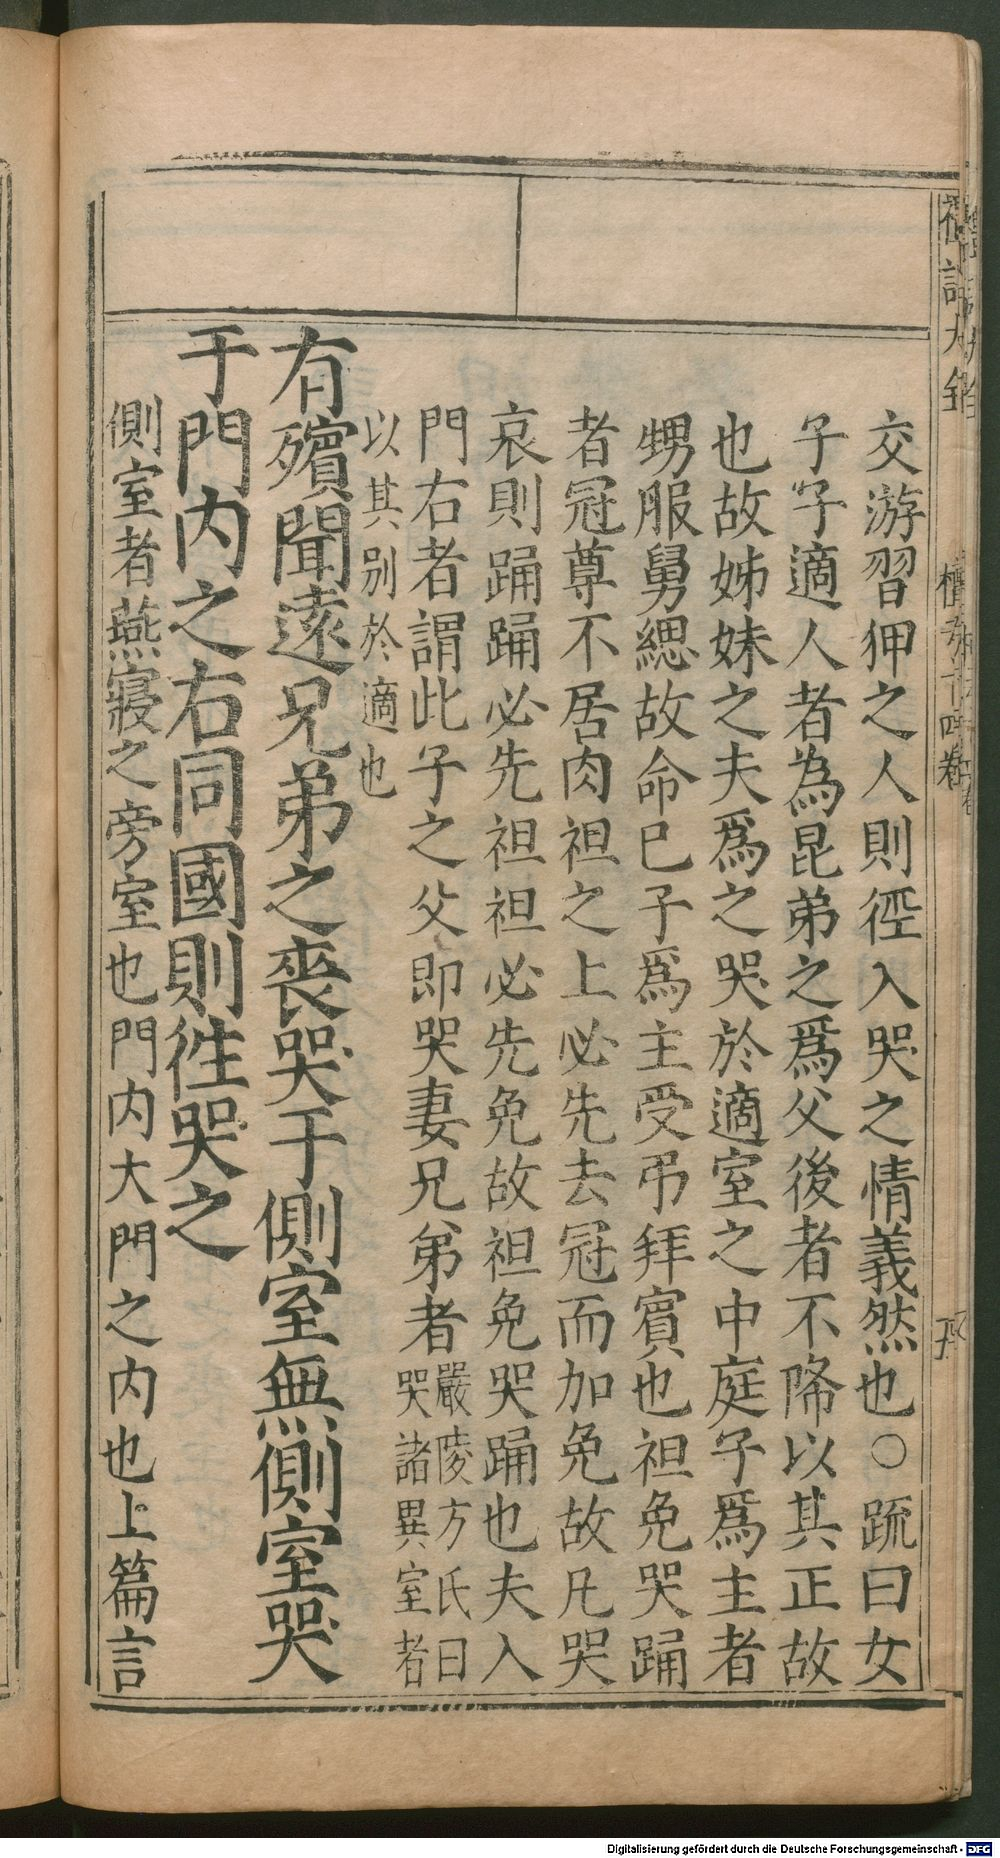 交游習狎之人則徑入哭之情義然也○疏曰女
子子適人者為昆弟之爲父後者不降以其正故
也故姊妹之夫爲之哭於適室之中庭子爲主者
甥服舅緦故命已子爲主受弔拜賓也袒免哭踊
者冠尊不居肉袒之上必先去冠而加免故凡哭
哀則踊踊必先袒袒必先免故袒免哭踊也夫入
門右者謂此子之父即哭妻兄弟者嚴陵方氏曰哭諸異室者
以其别於適也
有殯聞遠兄弟之喪哭于側室無側室哭
于門内之右同國則徃哭之
側室者燕寢之旁室也門内大門之内也上篇言
Digitalisierung gefördert durch die Deutsche Forschungsgemeinschaft - DFG